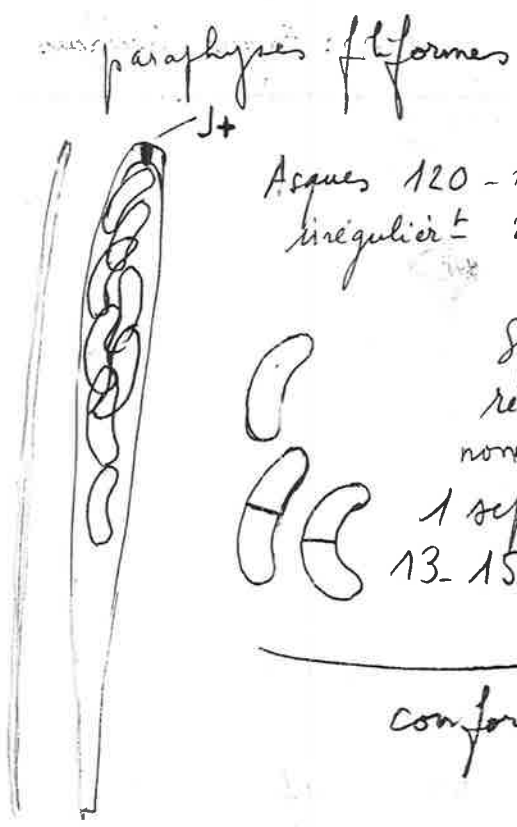 paraphyses : filiformes
J+
Asques 120 -
irrégulièrt
1 sep
13-15
confor